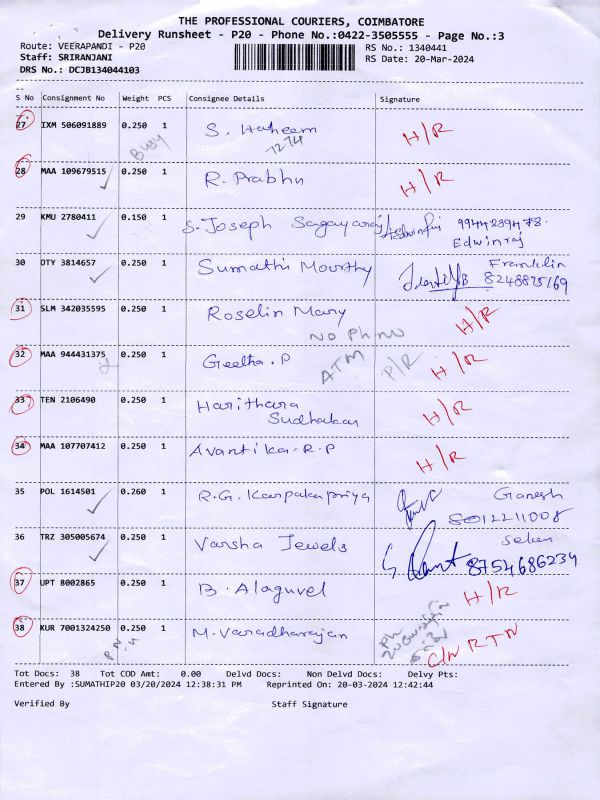 THE PROFESSIONAL COURIERS, COIMBATORE
Delivery Runsheet - P20 - Phone No.:0422-3505555 - Page No.:3
Route: VEERAPANDI - P20 RS No.: 1340441
Staff: SRIRANJANI RS Date: 20-Mar-2024
DRS No.: DCJB134044103
S No Consignment No Weight PCS Consignee Details Signature
27 IXM 506091889 0.250 1 S. Haheem H/R
Busy 7274
28 MAA 109679515 0.250 1 R. Prabhu H/R
29 KMU 2780411 0.150 1 S. Joseph Sagayaraj 9944239478
Edwinraj
30 DTY 3814657 0.250 1 Sumathi Moorthy Franklin
8248875169
31 SLM 342035595 0.250 1 Roselin Mary H/R
No Ph No
32 MAA 944431375 0.250 1 Geetha. P ATM P/R H/R
33 TEN 2106490 0.250 1 Harithara H/R
Sudhakar
34 MAA 107707412 0.250 1 Avantika. R. P H/R
35 POL 1614501 0.260 1 R.G. Karpakapriya Ganesh
8012211008
36 TRZ 305005674 0.250 1 Varsha Jewels
8754686234
37 UPT 8002865 0.250 1 B. Alaguvel H/R
38 KUR 7001324250 0.250 1 M. Varadharajan C/N RTN
Tot Docs: 38 Tot COD Amt: 0.00 Delvd Docs: Non Delvd Docs: Delvy Pts:
Entered By :SUMATHIP20 03/20/2024 12:38:31 PM Reprinted On: 20-03-2024 12:42:44
Verified By Staff Signature